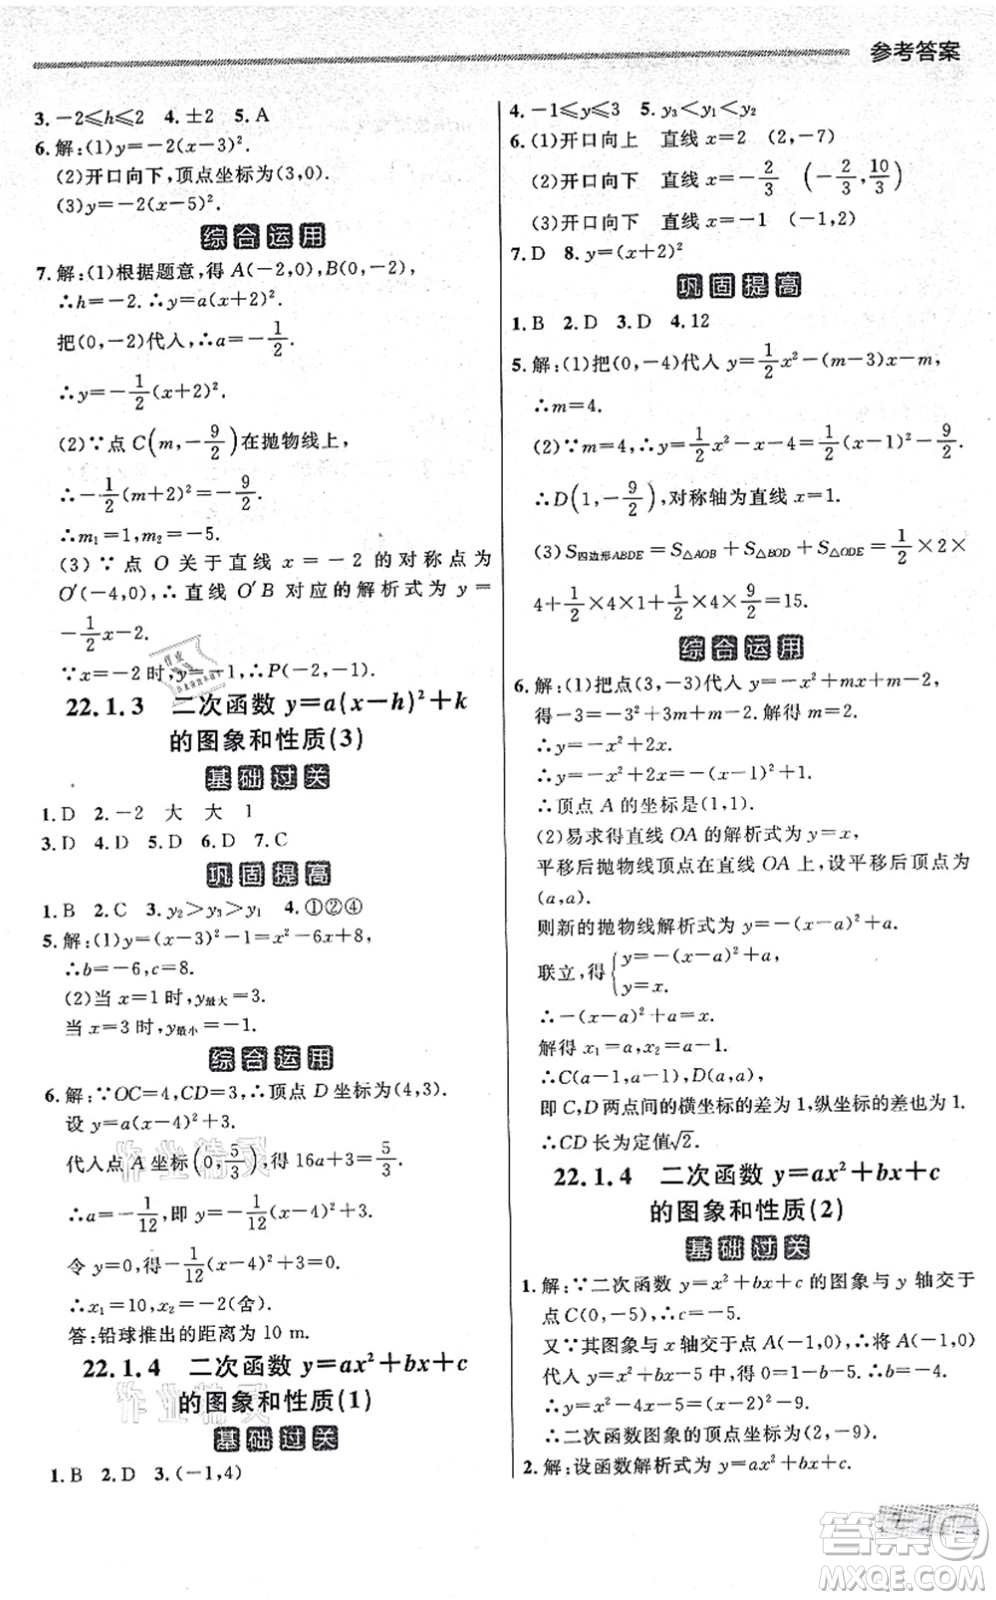 参考答案
3. －2≤h≤2　4. ±2　5. A
6. 解:(1)y=－2(x－3)².
(2)开口向下,顶点坐标为(3,0).
(3)y=－2(x－5)².
综合运用
7. 解:(1)根据题意,得 A(－2,0),B(0,－2),
∴h=－2. ∴y=a(x+2)².
把(0,－2)代入,∴a=－1/2.
∴y=－1/2(x+2)².
(2)∵点 C(m,－9/2)在抛物线上,
∴－1/2(m+2)²=－9/2.
∴m₁=1,m₂=－5.
(3)∵点 O 关于直线 x=－2 的对称点为
O′(－4,0),∴直线 O′B 对应的解析式为 y=
－1/2x－2.
∵x=－2 时,y=－1,∴P(－2,－1).
22.1.3　二次函数 y=a(x－h)²+k
的图象和性质(3)
基础过关
1. D　2. －2　大　大　1
3. D　4. D　5. D　6. D　7. C
巩固提高
1. B　2. C　3. y₂>y₃>y₁　4. ①②④
5. 解:(1)y=(x－3)²－1=x²－6x+8,
∴b=－6,c=8.
(2)当 x=1 时,y最大=3.
当 x=3 时,y最小=－1.
综合运用
6. 解:∵OC=4,CD=3,∴顶点 D 坐标为(4,3).
设 y=a(x－4)²+3,
代入点 A 坐标(0,5/3),得 16a+3=5/3.
∴a=－1/12,即 y=－1/12(x－4)²+3.
令 y=0,得－1/12(x－4)²+3=0.
∴x₁=10,x₂=－2(舍).
答:铅球推出的距离为 10 m.
22.1.4　二次函数 y=ax²+bx+c
的图象和性质(1)
基础过关
1. B　2. D　3. (－1,4)
4. －1≤y≤3　5. y₃<y₁<y₂
6. (1)开口向上　直线 x=2　(2,－7)
(2)开口向下　直线 x=－2/3　(－2/3,10/3)
(3)开口向下　直线 x=－1　(－1,－2)
7. D　8. y=(x+2)²
巩固提高
1. B　2. D　3. D　4. 12
5. 解:(1)把(0,－4)代入 y=1/2x²－(m－3)x－m,
∴m=4.
(2)∵m=4,∴y=1/2x²－x－4=1/2(x－1)²－9/2.
∴D(1,－9/2),对称轴为直线 x=1.
(3)S四边形ABDE=S△AOB+S△BOD+S△ODE=1/2×2×
4+1/2×4×1+1/2×4×9/2=15.
综合运用
6. 解:(1)把点(3,－3)代入 y=－x²+mx+m,
得－3=－3²+3m+m. 解得 m=2.
∴y=－x²+2x.
∴y=－x²+2x=－(x－1)²+1.
∴顶点 A 的坐标是(1,1).
(2)易求得直线 OA 的解析式为 y=x,
平移后抛物线顶点在直线 OA 上,设平移后顶点为
(a,a).
则新的抛物线解析式为 y=－(x－a)²+a.
联立,得{y=－(x－a)²+a, y=x.
∴－(x－a)²+a=x.
解得 x₁=a,x₂=a－1.
∴C(a－1,a－1),D(a,a).
即 C,D 两点间的横坐标的差为 1,纵坐标的差也为 1.
∴CD 长为定值√2.
22.1.4　二次函数 y=ax²+bx+c
的图象和性质(2)
基础过关
1. 解:∵二次函数 y=x²+bx+c 的图象与 y 轴交于
点 C(0,－5),∴c=－5.
又∵其图象与 x 轴交于点 A(－1,0),∴把 A(－1,0)
代入 y=x²+bx－5 中,得 0=1－b－5. ∴b=－4.
∴y=x²－4x－5=(x－2)²－9.
∴二次函数图象的顶点坐标为(2,－9).
2. 解:设函数解析式为 y=ax²+bx+c.
作业精灵
作业精灵
答案圈
MXQE.COM